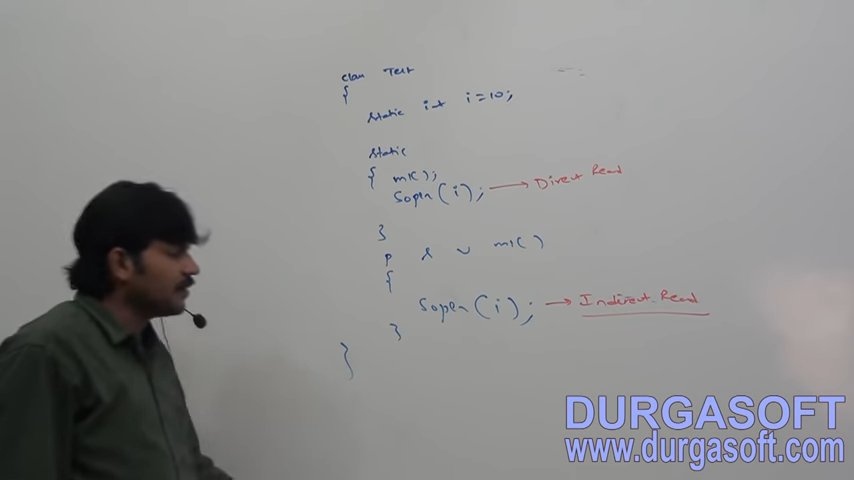 class Test
{
static int i=10;
static
{ m1();
Sopln(i); → Direct Read
}
p s v m1()
{
Sopln(i); → Indirect Read
}
}
DURGASOFT
www.durgasoft.com